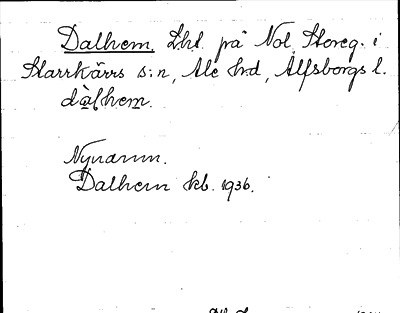 Dalhem, Lht på Nol Storeg. i
Starrkärrs s:n, Ale hd, Älfsborgs l.
dàlhem.
Nynamn.
Dalhem kb. 1936.